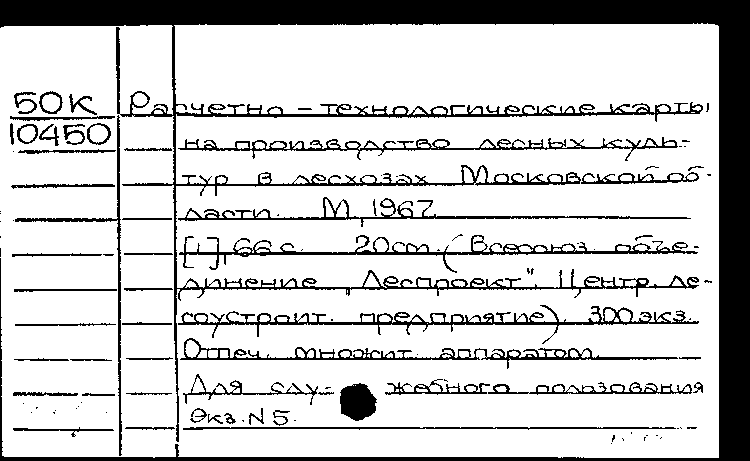 50К Расчетно-технологические карты
10450 на производство лесных куль-
тур в лесхозах Московской об-
ласти. М, 1967.
[1], 66 с. 20 см. (Всесоюз. объе-
динение „Леспроект". Центр. ле-
соустроит. предприятие). 300 экз.
Отпеч. множит. аппаратом.
Для слу-жебного пользования
Экз. N 5.